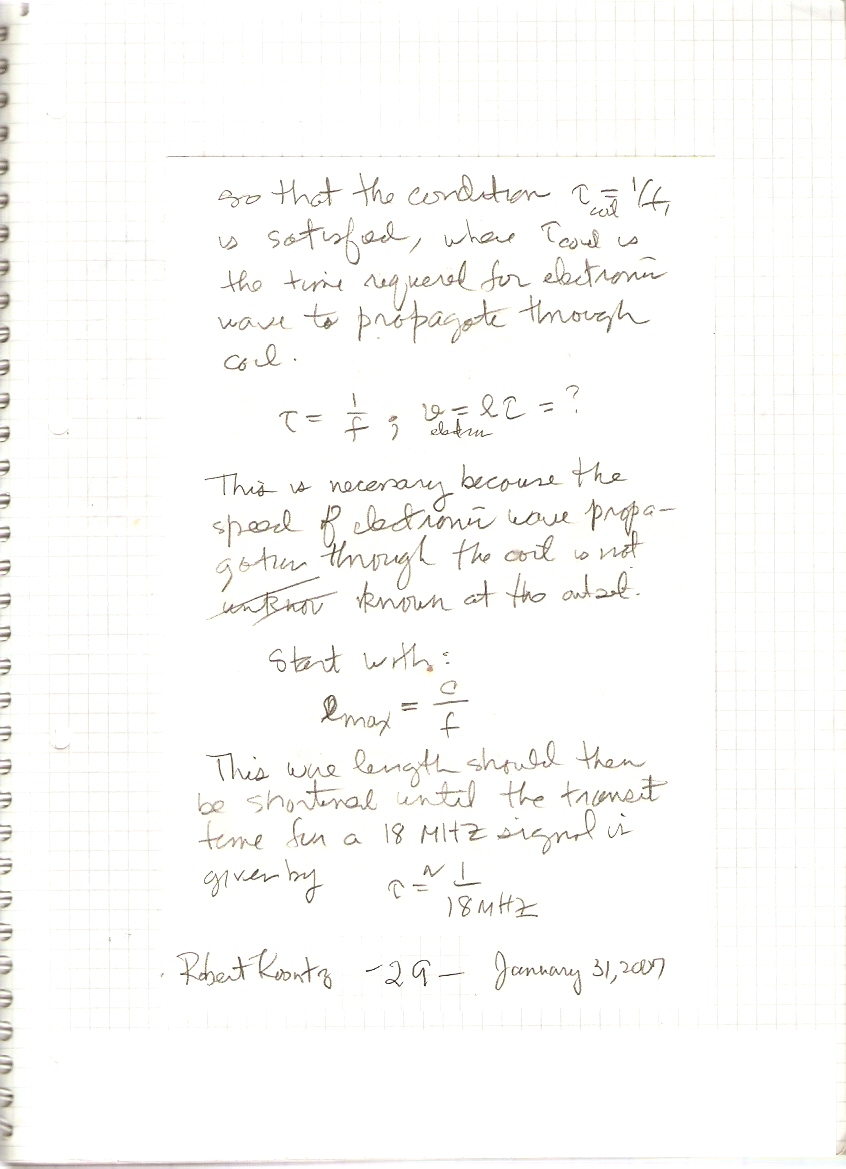 so that the condition τcoil = 1/f,
is satisfied, where τcoil is
the time required for electronic
wave to propagate through
coil.
τ = 1/f ; v electron = lτ = ?
This is necessary because the
speed of electronic wave propa-
gation through the coil is not
unknow known at the outset.
Start with:
lmax = c/f
This wire length should then
be shortened until the transit
time for a 18 MHZ signal is
given by τ ≅ 1/18MHZ
Robert Koontz - 29 - January 31, 2007